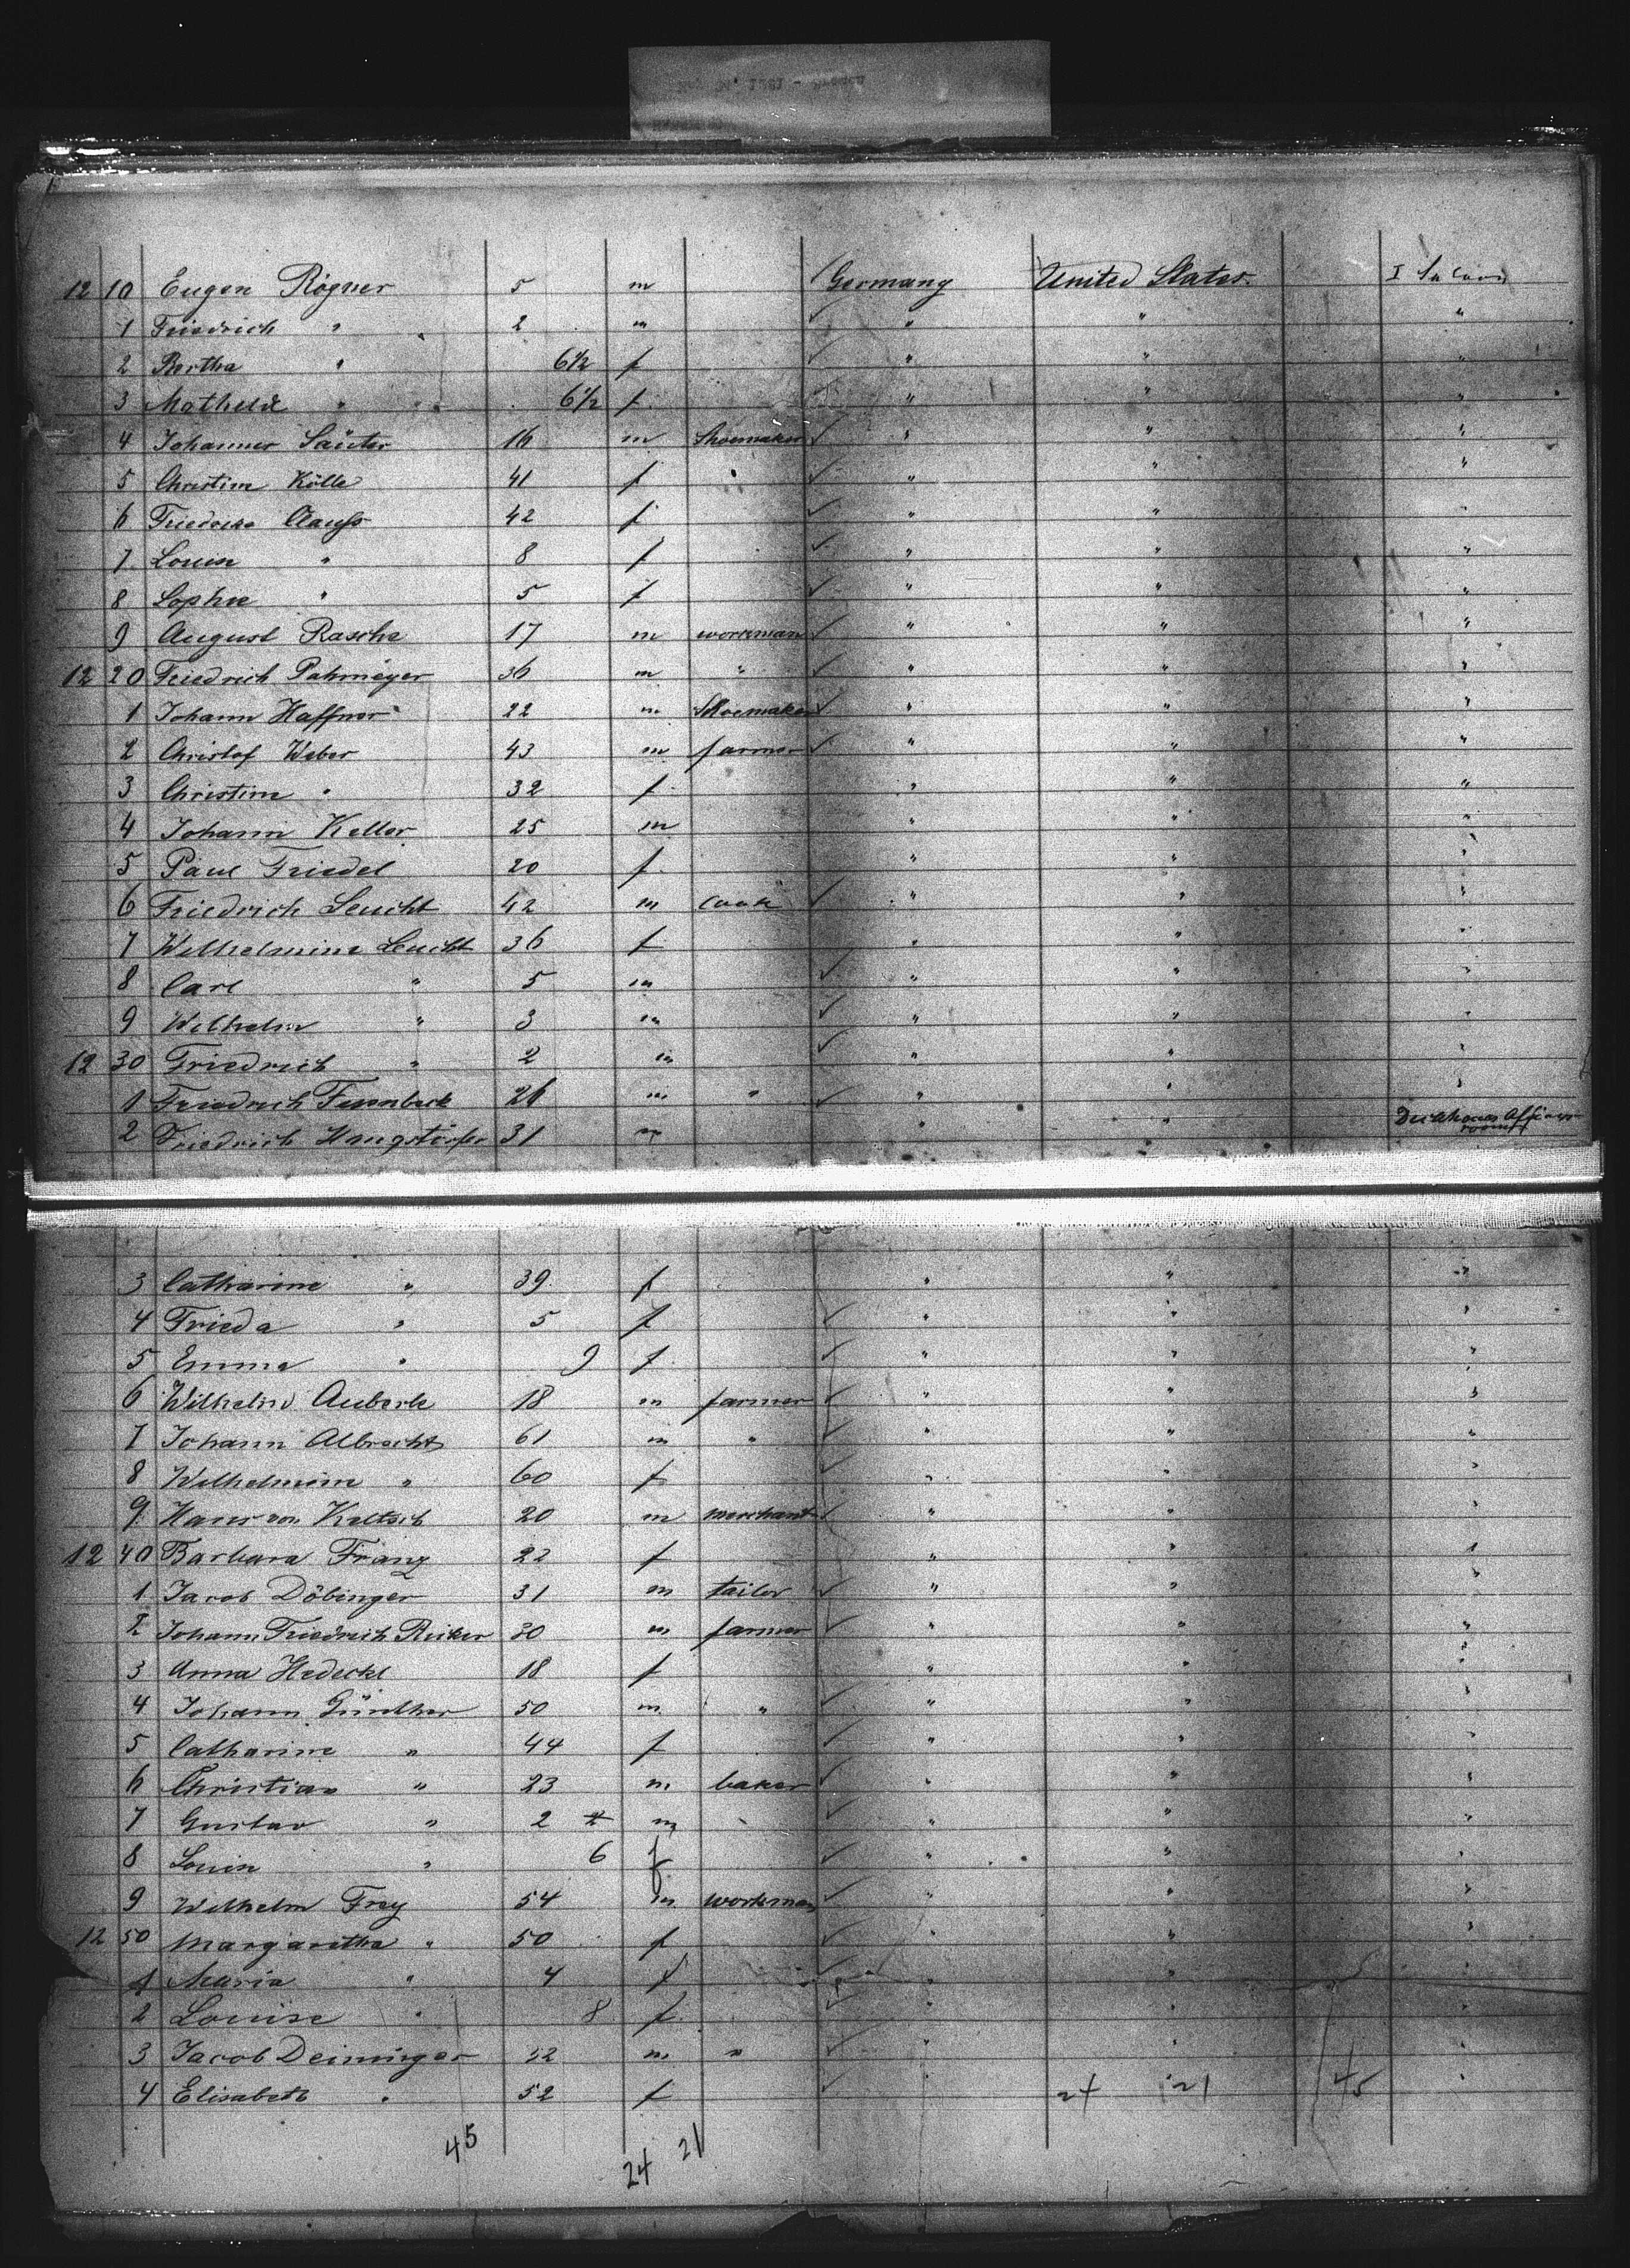 12 10 Eugen Rögner 5 m Germany United States I
1 Friedrich " 2 m " " "
2 Bertha " 6½ f " " "
3 Mathilde " 6½ f " " "
4 Johannes Säuter 16 m Shoemaker " " "
5 Christine Kölle 41 f " " " "
6 Friedrike Clauss 42 f " " "
7 Louise " 8 f " " "
8 Sophie " 5 f " " "
9 August Rasche 17 m workman " " "
12 20 Friedrich Pahmeyer 36 m " " " "
1 Johann Haffner 22 m Shoemaker " " "
2 Christof Weber 43 m farmer " " "
3 Christine " 32 f " " "
4 Johann Keller 25 m " " "
5 Paul Friedel 20 f " " "
6 Friedrich Leucht 42 m cook " " "
7 Wilhelmine Leucht 36 f " " "
8 Carl " 5 m " " "
9 Wilhelm " 3 m " " "
12 30 Friedrich " 2 m " " "
1 Friedrich 26 m " " " "
2 Friedrich 31 m " " rooms
3 Catharine " 39 f " " "
4 Frieda " 5 f " " "
5 Emma " 9 f " " "
6 Wilhelm Auberle 18 m farmer " " "
7 Johann Albrecht 61 m " " " "
8 Wilhelmine " 60 f " " "
9 Hans von Keltsch 20 m merchant " " "
12 40 Barbara Franz 22 f " " "
1 Jacob Döbinger 31 m tailor " " "
2 Johann Friedrich Ricker 30 m farmer " " "
3 Anna Hedeckl 18 f " " "
4 Johann Günther 50 m " " " "
5 Catharine " 44 f " " "
6 Christian " 23 m baker " " "
7 Gustav " 2 m " " " "
8 Louise " 6 f " " "
9 Wilhelm Frey 54 m workman " " "
12 50 Margaretha " 50 f " " "
1 Maria " 4 f " " "
2 Louise " 8 f " " "
3 Jacob Deininger 52 m " " " "
4 Elisabeth " 52 f 24 21 45 "
45 24 21